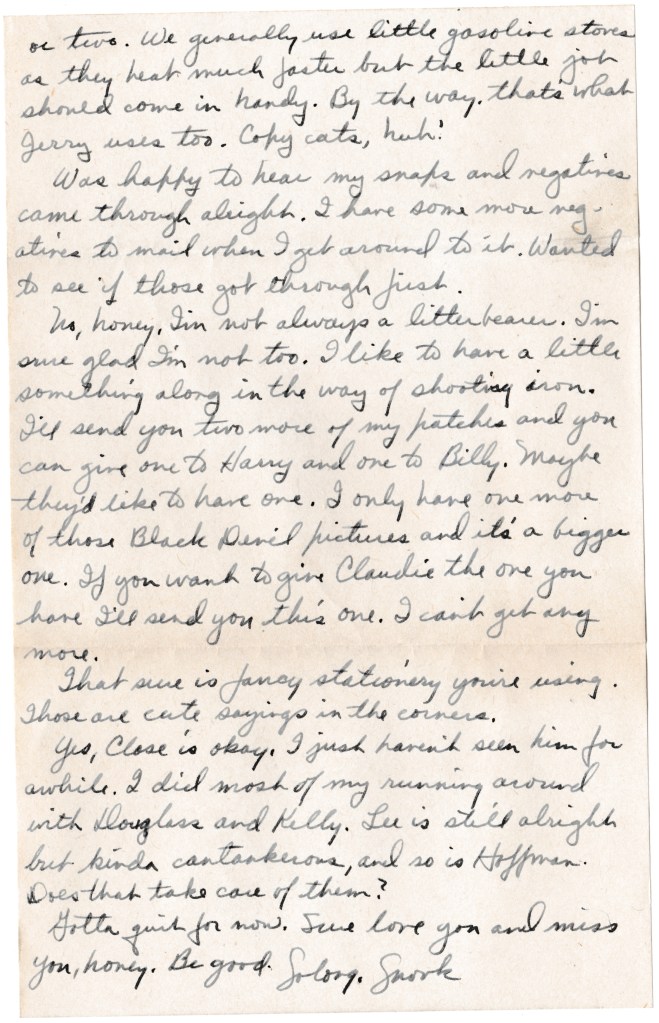 or two. We generally use little gasoline stoves
as they heat much faster but the little job
should come in handy. By the way, that's what
Jerry uses too. Copy cats, huh!
Was happy to hear my snaps and negatives
came through alright. I have some more neg-
atives to mail when I get around to it. Wanted
to see if those got through first.
No, honey, I'm not always a litterbearer. I'm
sure glad I'm not too. I like to have a little
something along in the way of shooting iron.
I'll send you two more of my patches and you
can give one to Harry and one to Billy. Maybe
they'd like to have one. I only have one more
of those Black Devil pictures and it's a bigger
one. If you want to give Claudie the one you
have I'll send you this one. I can't get any
more.
That sure is fancy stationery you're using.
Those are cute sayings in the corners.
Yes, Close is okay. I just haven't seen him for
awhile. I did most of my running around
with Douglass and Kelly. Lee is still alright
but kinda cantankerous, and so is Hoffman.
Does that take care of them?
Gotta quit for now. Sure love you and miss
you, honey. Be good. So long. Snork